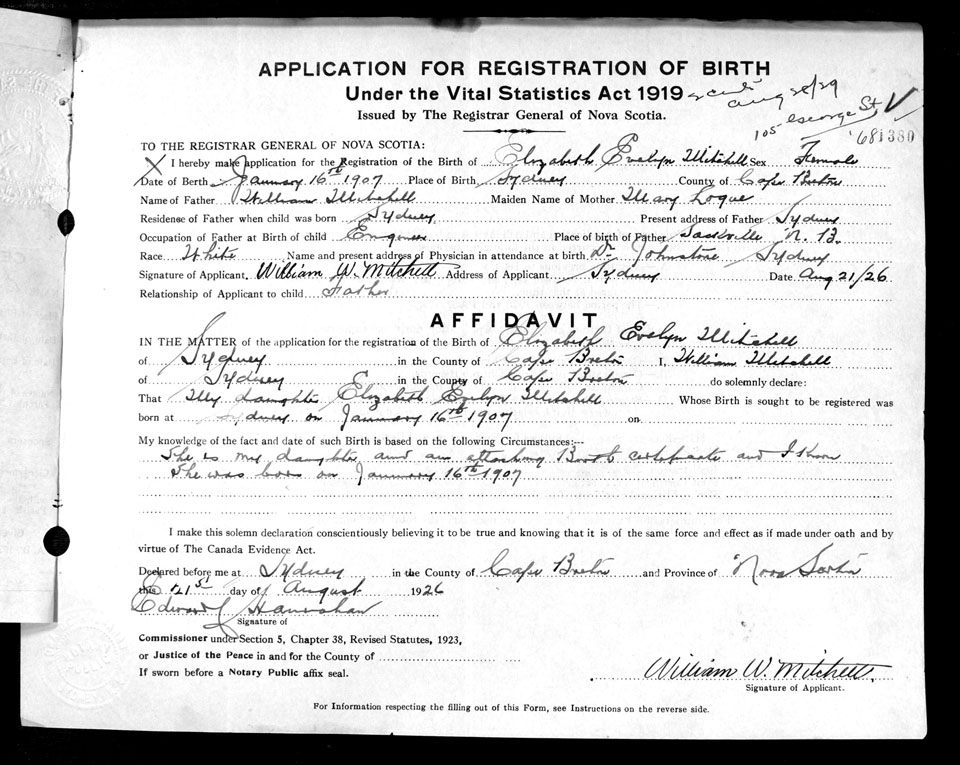 APPLICATION FOR REGISTRATION OF BIRTH
Under the Vital Statistics Act 1919
Aug 28/29
Issued by The Registrar General of Nova Scotia.
105 George St. V
681380
TO THE REGISTRAR GENERAL OF NOVA SCOTIA:
X I hereby make application for the Registration of the Birth of Elizabeth Evelyn Mitchell Sex Female
Date of Berth January 16th 1907 Place of Birth Sydney County of Cape Breton
Name of Father William Mitchell Maiden Name of Mother Mary Logue
Residence of Father when child was born Sydney Present address of Father Sydney
Occupation of Father at Birth of child Engineer Place of birth of Father Sackville N. B.
Race White Name and present address of Physician in attendance at birth Dr Johnstone Sydney
Signature of Applicant. William W. Mitchell Address of Applicant Sydney Date Aug 21/26
Relationship of Applicant to child Father
AFFIDAVIT
IN THE MATTER of the application for the registration of the Birth of Elizabeth Evelyn Mitchell
of Sydney in the County of Cape Breton I, William Mitchell
of Sydney in the County of Cape Breton do solemnly declare:
That My daughter Elizabeth Evelyn Mitchell Whose Birth is sought to be registered was
born at Sydney on January 16th 1907 on
My knowledge of the fact and date of such Birth is based on the following Circumstances:--
She is my daughter and am attaching Birth certificate and I know
She was born on January 16th 1907
I make this solemn declaration conscientiously believing it to be true and knowing that it is of the same force and effect as if made under oath and by
virtue of The Canada Evidence Act.
Declared before me at Sydney in the County of Cape Breton and Province of Nova Scotia
this 21st day of August 1926
Edward
Signature of
Commissioner under Section 5, Chapter 38, Revised Statutes, 1923,
or Justice of the Peace in and for the County of
If sworn before a Notary Public affix seal.
William W. Mitchell.
Signature of Applicant.
For Information respecting the filling out of this Form, see Instructions on the reverse side.